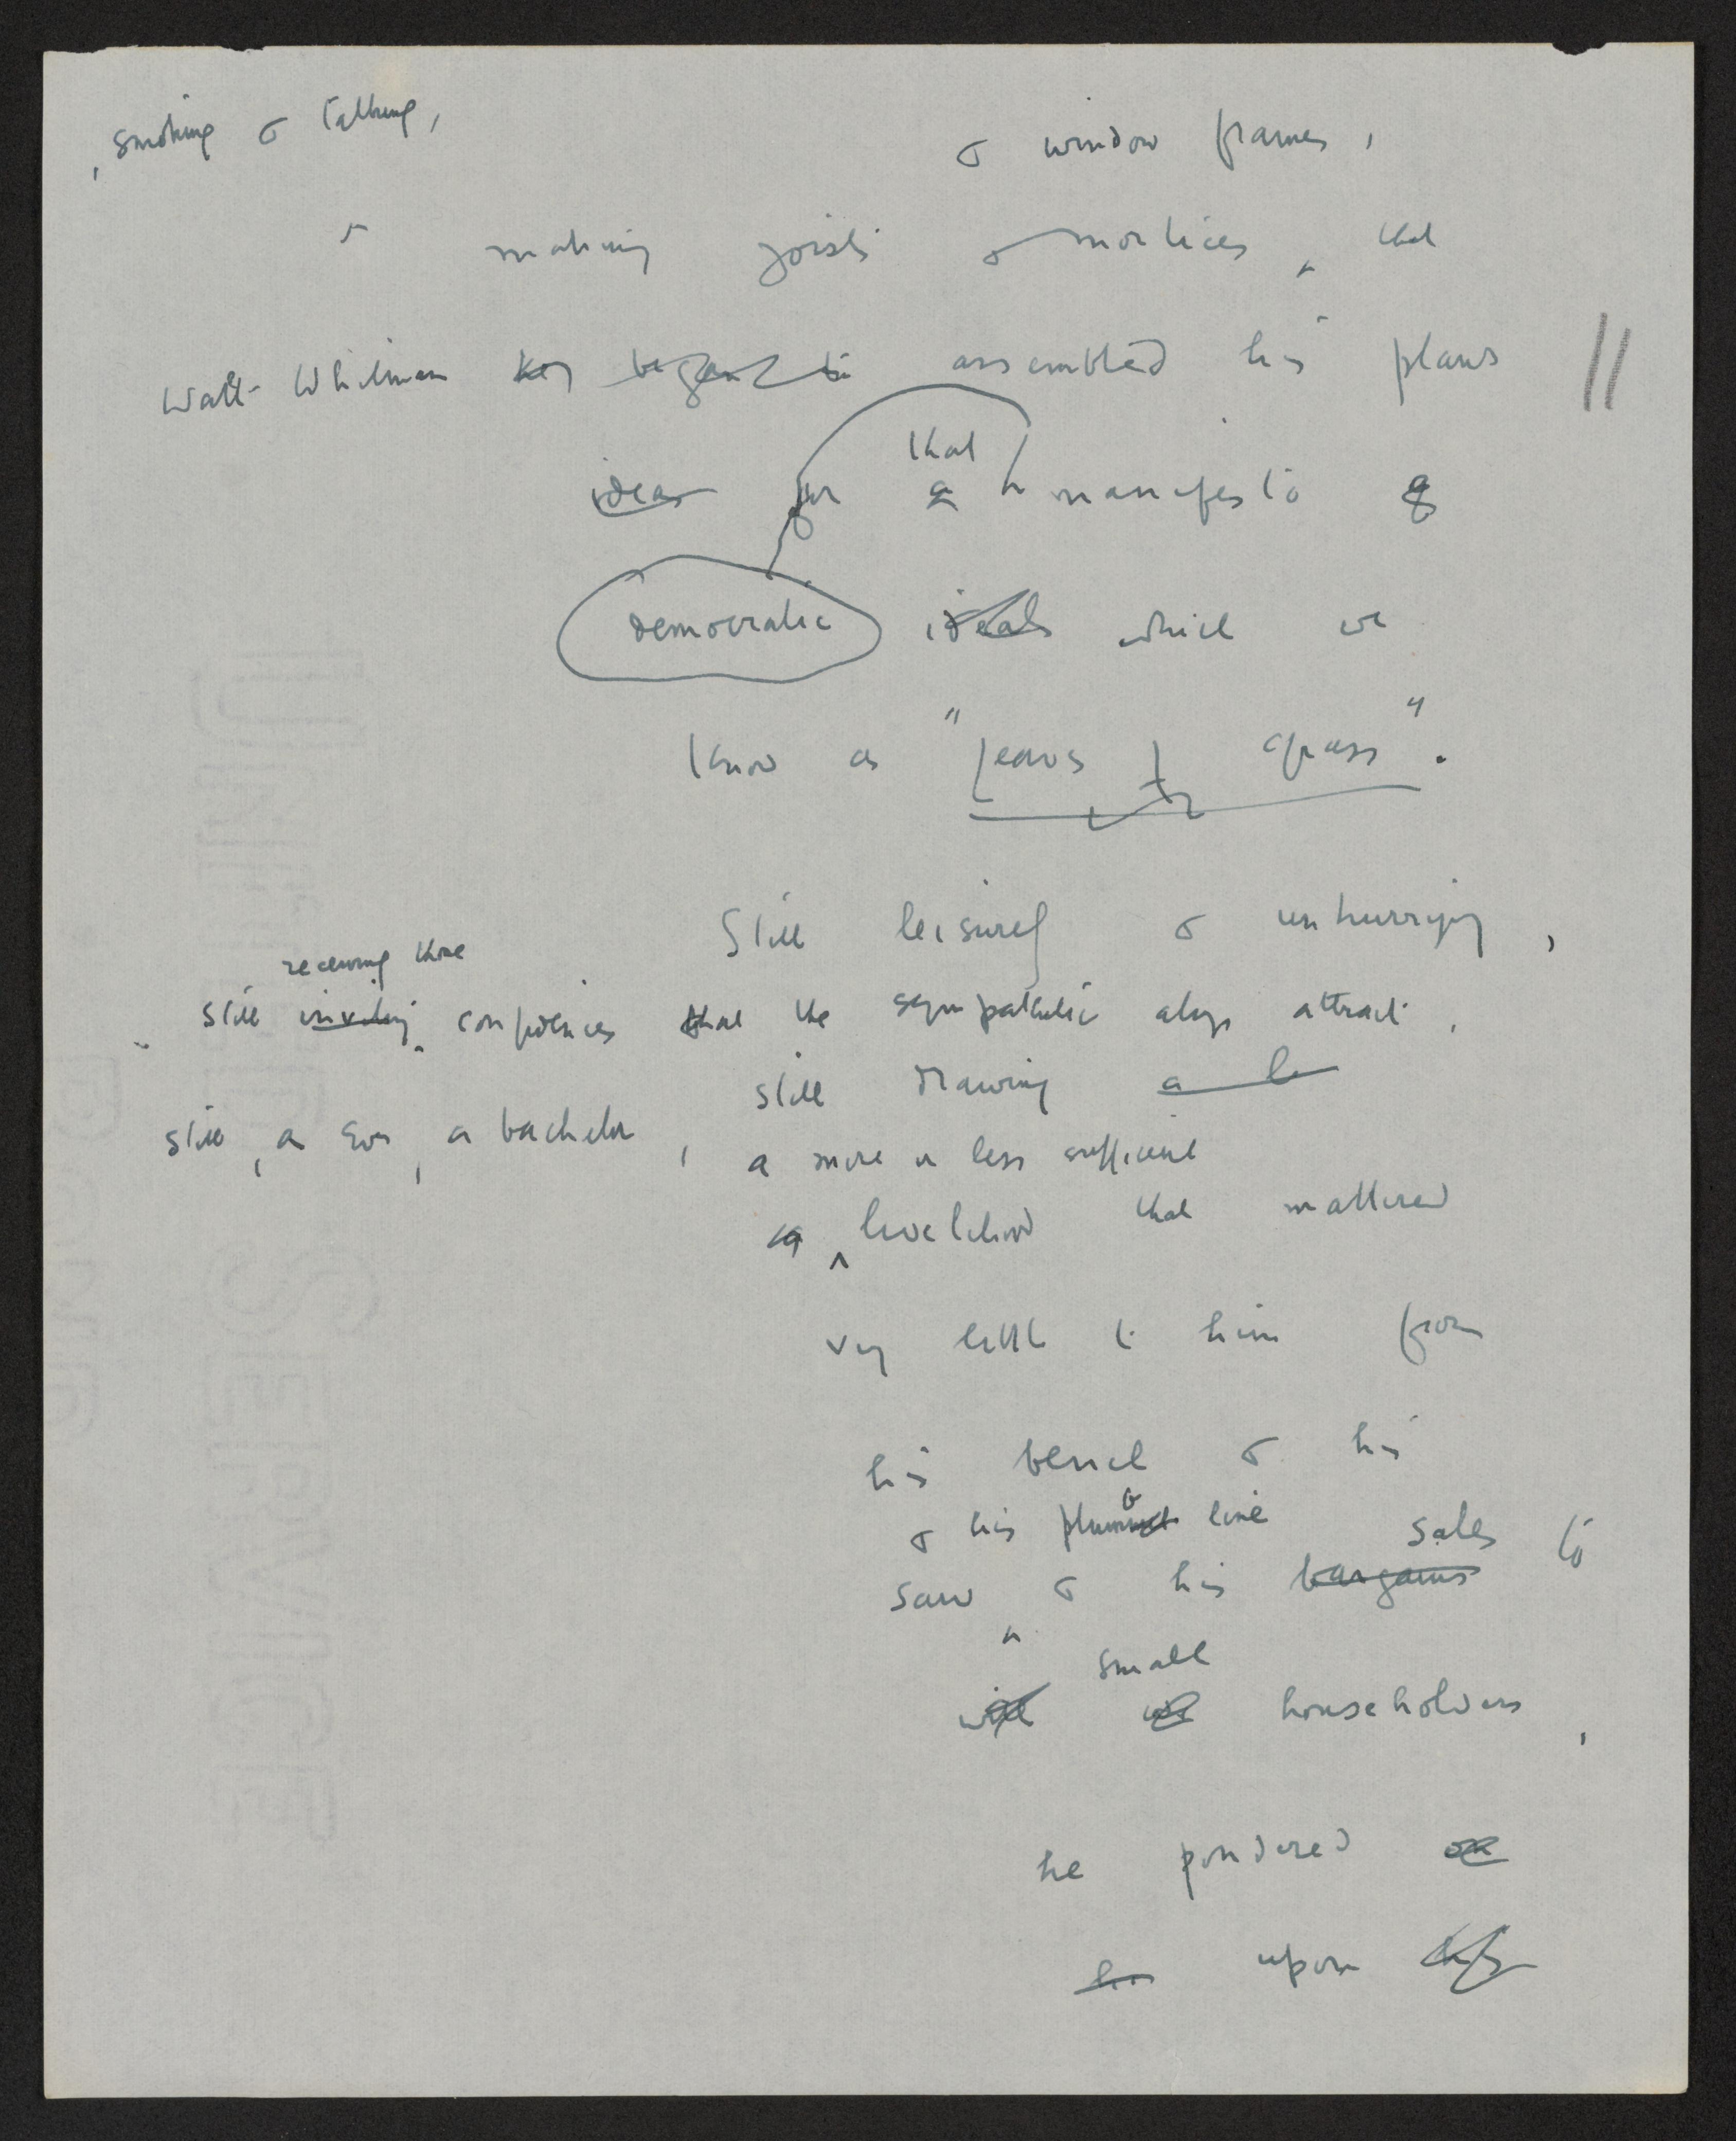 , smoking & talking,
& window frames,
making joists & mortices ^ that
Walt Whitman began to assembled his plans
that
ideas for a manifesto of
democratic ideals which we
know as "Leaves of Grass".
Still leisurely & unhurrying,
receiving those
still inviting ^ confidences that the sympathetic always attract,
still drawing a
still, as ever, a bachelor,
a more or less sufficient
^ livelihood that mattered
very little to him from
his bench & his
& his plumb line
sales to
saw ^ & his bargains
small
with householders,
he pondered
upon